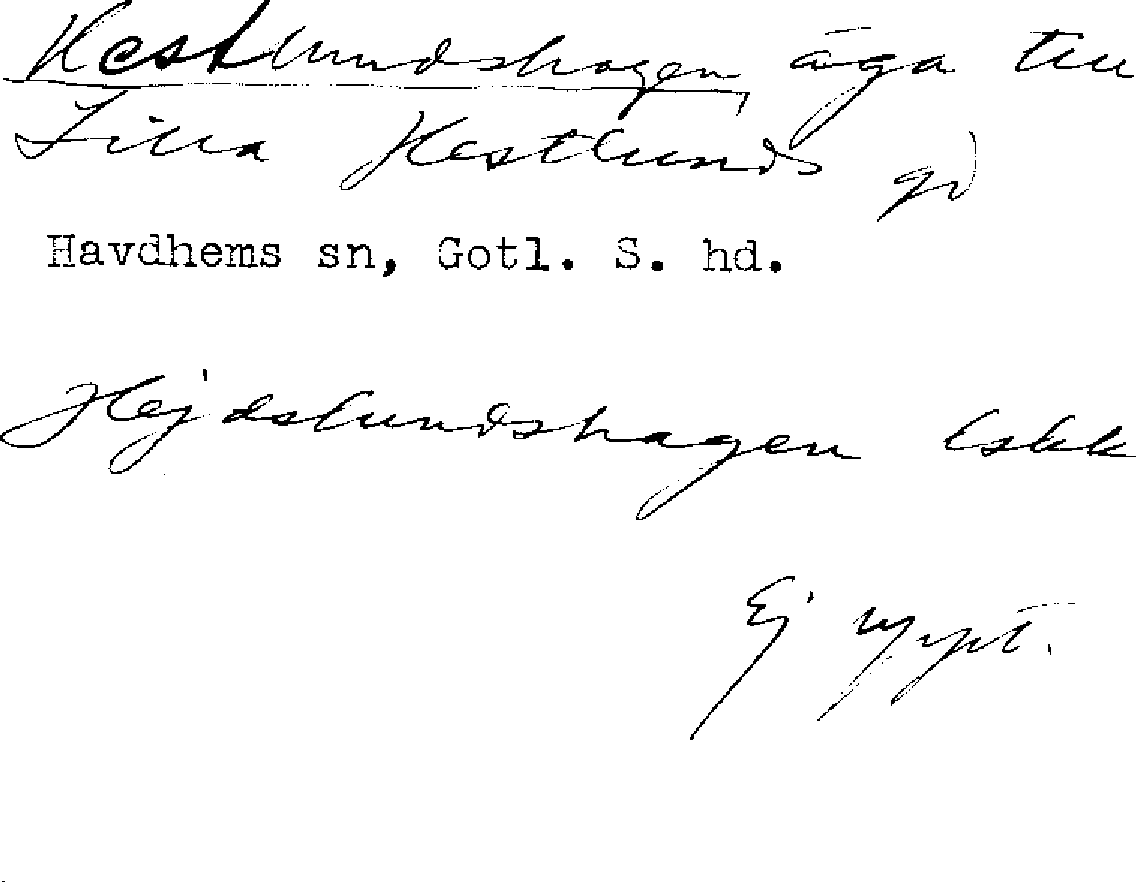 Hestlundshagen, äga till
Lilla Hestlunds gd
Havdhems sn, Gotl. S. hd.
Hejdslundshagen lskk
Ej uppt.